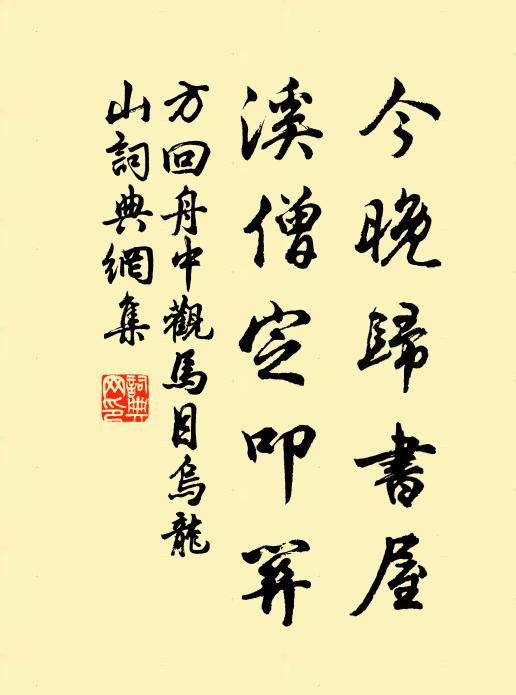 今晚歸書屋
溪僧定叩關
方回舟中觀馬目烏龍
山詞典網集
詞典網印